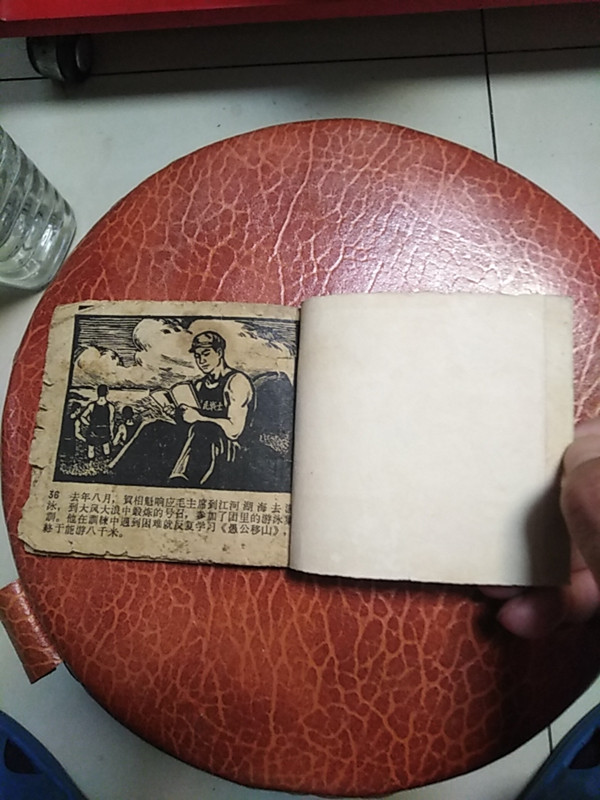 36 去年八月，賀相魁响应毛主席到江河湖海去游
泳，到大风大浪中鍛炼的号召，参加了团里的游泳集
訓。他在訓練中遇到困难就反复学习《愚公移山》，
終于能游八千米。